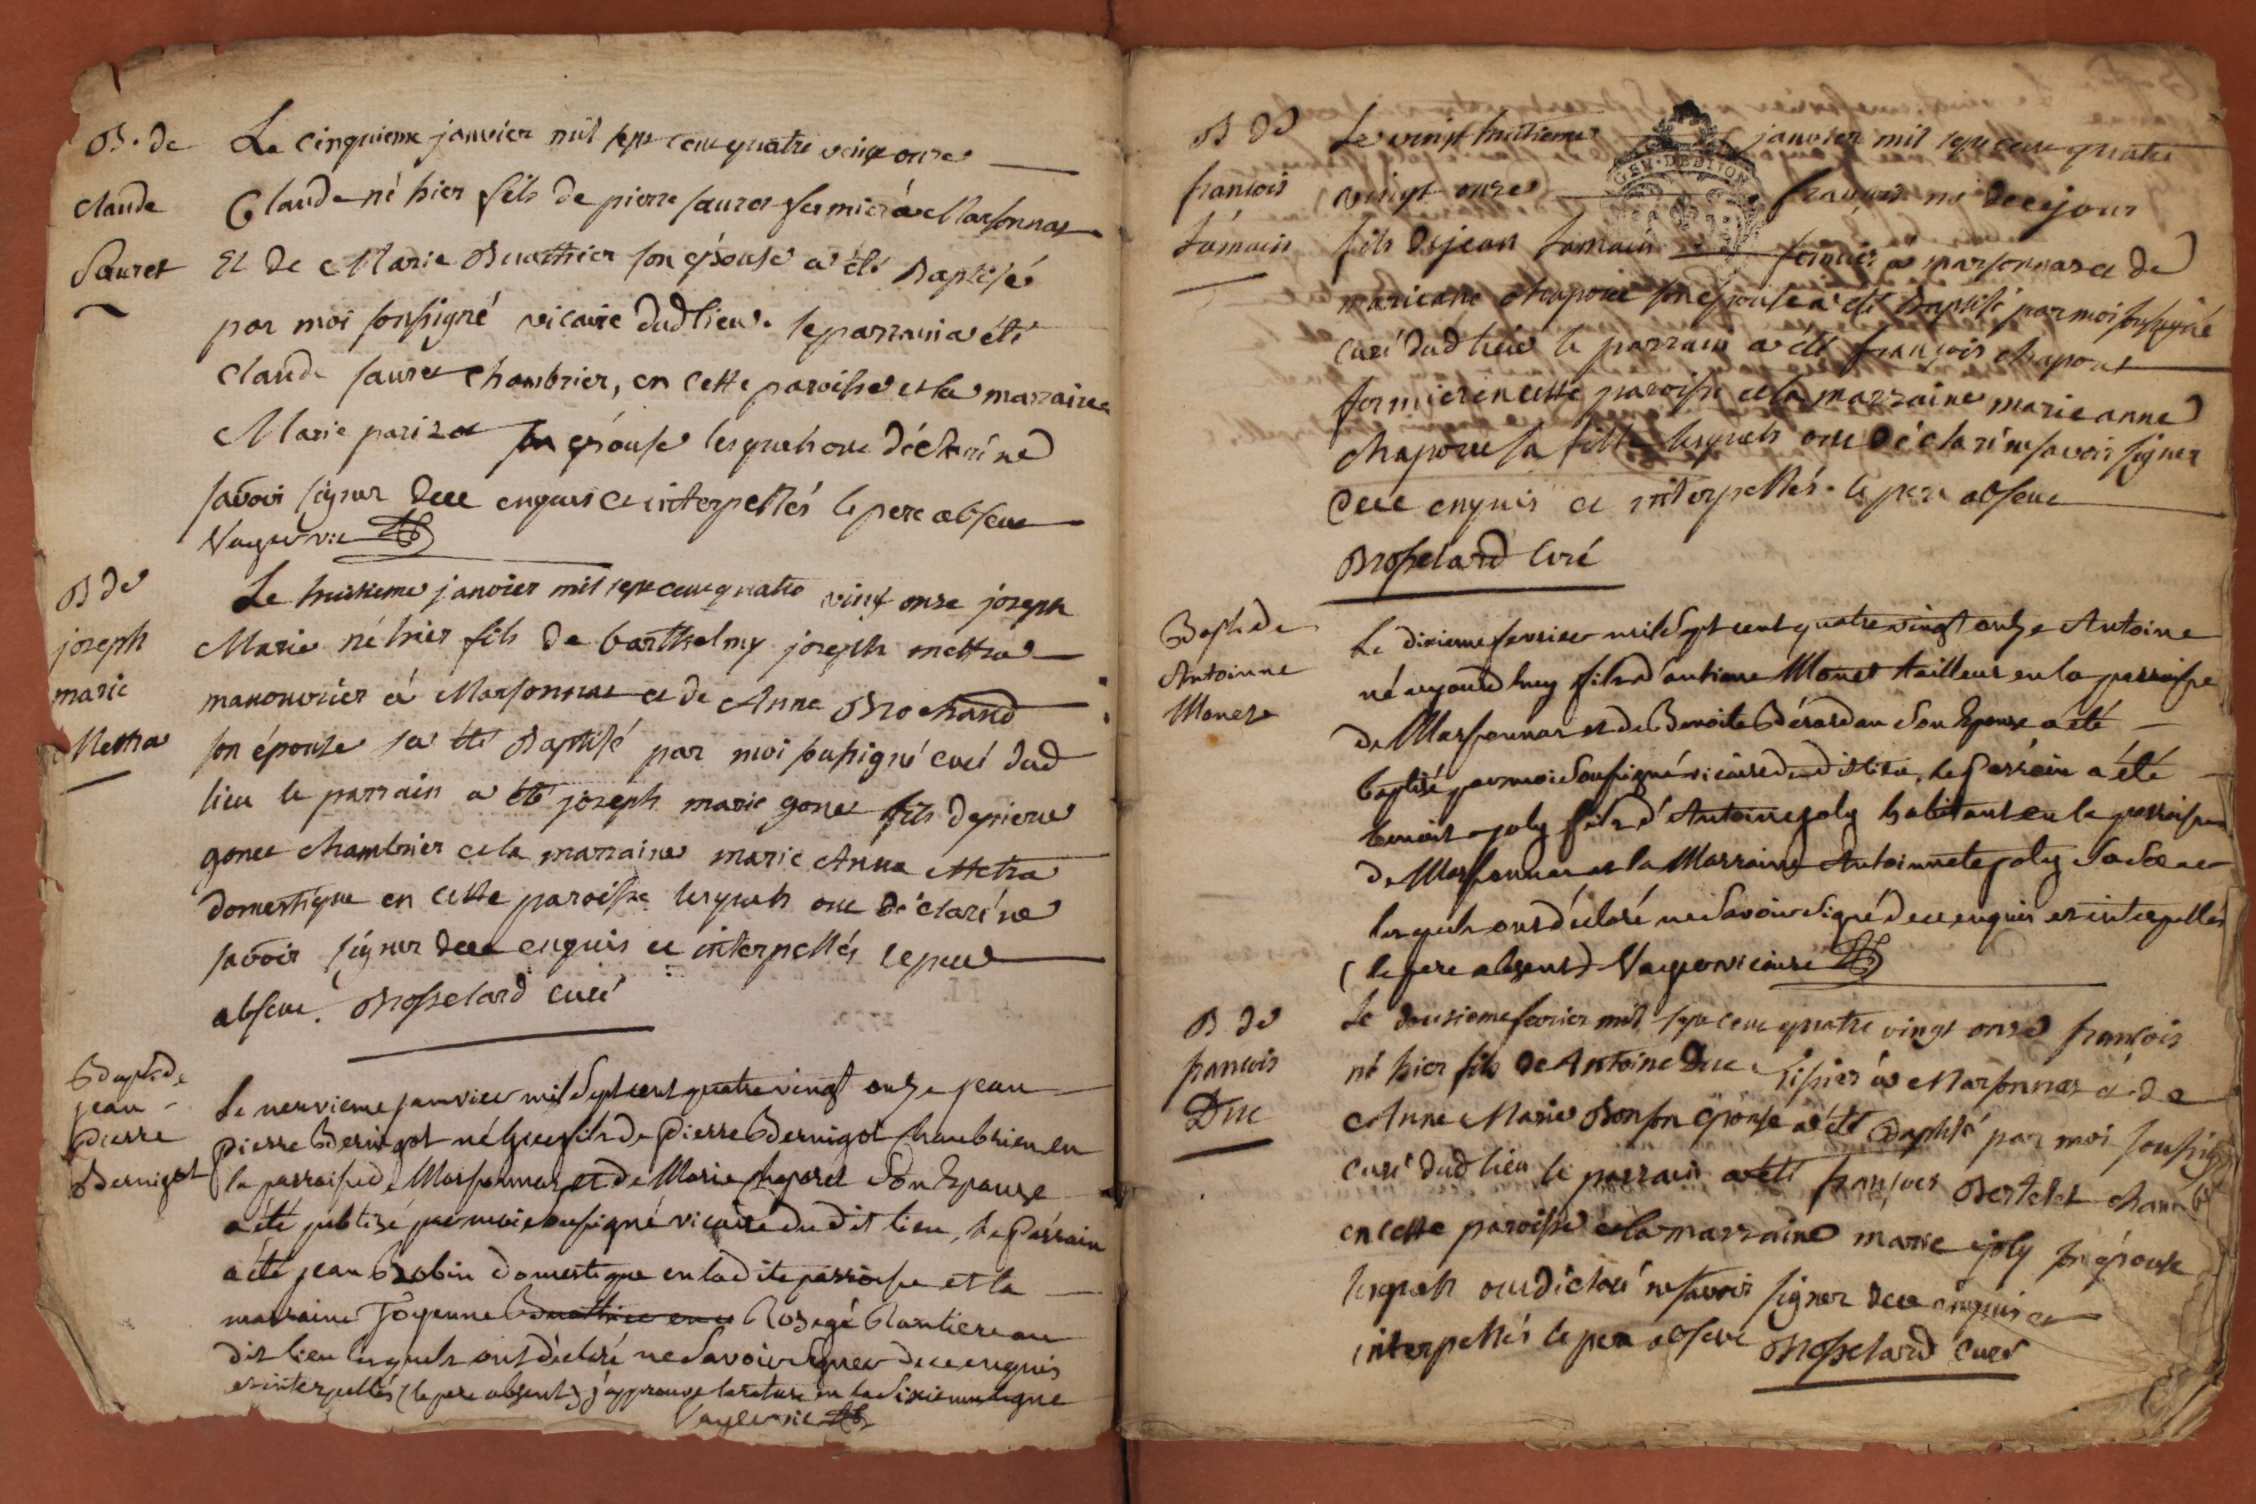 B. de
Claude
Sauret
Le cinquieme janvier mil sept cent quatre vingt onze
Claude né hier fils de pierre sauret fermier a Marsonnas
Et de Marie Buathier son épouse a été Baptisé
par moi soussigné vicaire dud lieu. le parrain a été
Claude sauret chambrier, en cette paroisse et la marraine
Marie parizot sa épouse lesquels ont déclaré ne
savoir signer de ce enquis et interpellés le pere absent
Vayer vic
B de
joseph
marie
Metra
Le huitieme janvier mil sept cent quatre vint onze joseph
Marie né hier fils de barthelmy joseph mettra
manouvrier à Marsonnas et de Anne Brochand
son épouze a été Baptisé par moi soussigné curé dud
lieu le parrain a été joseph marie gonet fils de pierre
gonet chambrier et la marraine marie Anne Metra
domestique en cette paroisse lesquels ont déclaré ne
savoir signer de ce enquis et interpellés le pere
absent. Brosselard curé
Bapt. de
jean
pierre
Bernigot
Le neuvieme janvier mil Sept cent quatre vingt onze jean
pierre Bernigot né hier fils de pierre Bernigot chambrier en
la parroisse de Marsonnas et de Marie chaporel Son Epouze
a été public par moi soussigné vicaire du dit lieu, le Parrain
a été jean Robin domestique en la dite parroisse et la
marraine au
dit lieu lesquels ont déclaré ne Savoir Signer de ce enquis
et interpellés (le pere absent) j'approuve la rature en la Sixieme ligne
Vayer vic
B de
francois
tamain
Le vingt huitieme janvier mil sept cent quatre
vingt onze francois né de ce jour
fils de jean tamain fermier a marsonnas et de
marieane chapone son épouse a été Baptisé par moi soussigné
curé dud lieu le parrain a été françois chapone
fermier en cette paroisse et la marraine marie anne
chapone sa fille lesquels ont déclaré ne savoir signer
de ce enquis et interpellés. le pere absent
Brosselard Curé
Bapt. de
Antoinne
Monet
Le dixieme fevrier mil Sept cent quatre vingt onze Antoine
né aujourd huy fils d'antoine Monet tailleur en la parroisse
de Marsonnas et de Benoite Bérardan Son Epouze a été
baptisé par moi Soussigné vicaire du dit lieu, le Parrain a été
benoit joly fils d'Antoine joly habitant en la parroisse
de Marsonnas et la Marraine Antoinnete joly Sa Sœur
lesquels ont déclaré ne Savoir Signé de ce enquis et interpellés
(le pere absent) Vayer vicaire
B de
francois
Duc
Le douzieme fevrier mil sept cent quatre vingt onze francois
né hier fils de Antoine Duc tissier a Marsonnas et de
Anne Marie Bon son épouse a été Baptisé par moi soussigné
curé dud lieu le parrain a été françois Bertelet
en cette paroisse et la marraine marie joly son épouse
lesquels ont déclaré ne savoir signer de ce enquis et
interpellés le pere absent Brosselard Curé